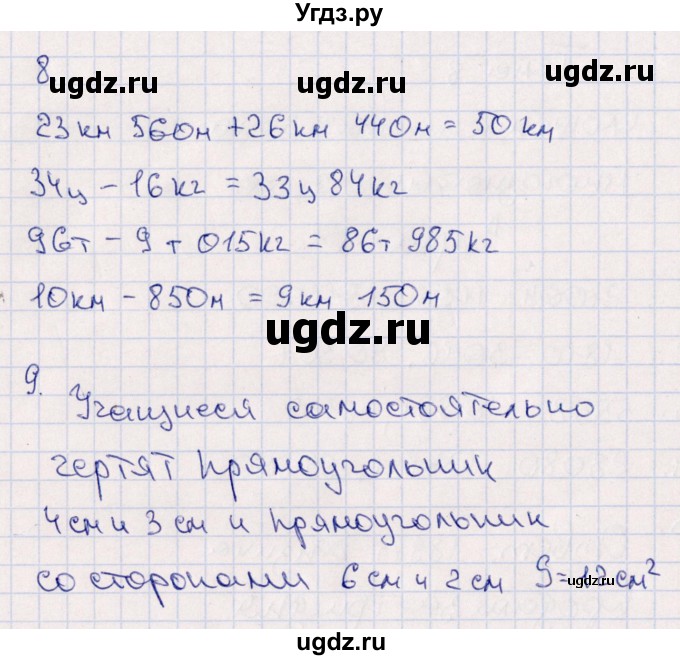 Угдз.ру
8
ugdz.ru ugdz.ru ugdz.ru
23 км 560м + 26 км 440м = 50 км
34ц - 16 кг = 33ц 84 кг
96т - 9 т 015кг = 86т 985кг
10км - 850м = 9 км 150м
ugdz.ru
9. Учащиеся самостоятельно
чертят прямоугольник
4 см и 3 см и прямоугольник
со сторонами 6 см и 2 см S=12 см²
ugdz.ru